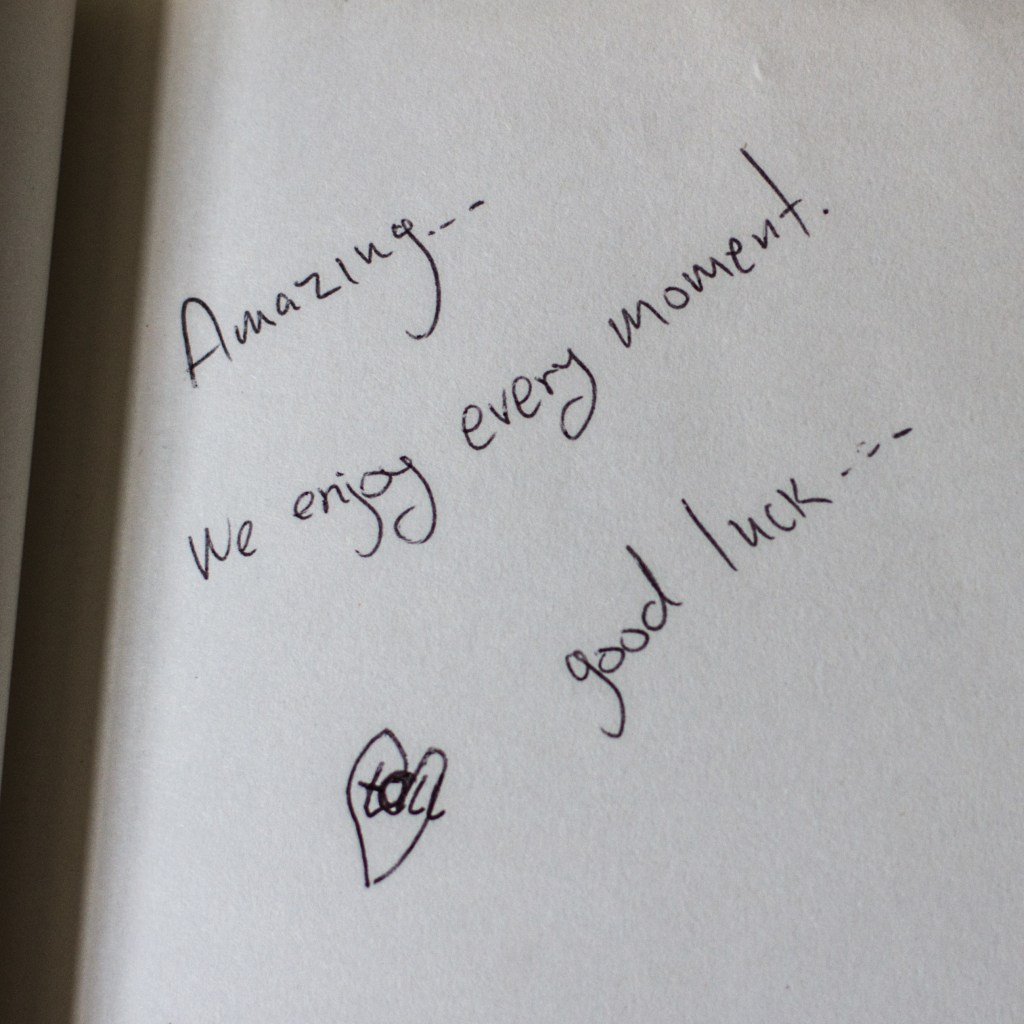 Amazing...
We enjoy every moment.
good luck ...